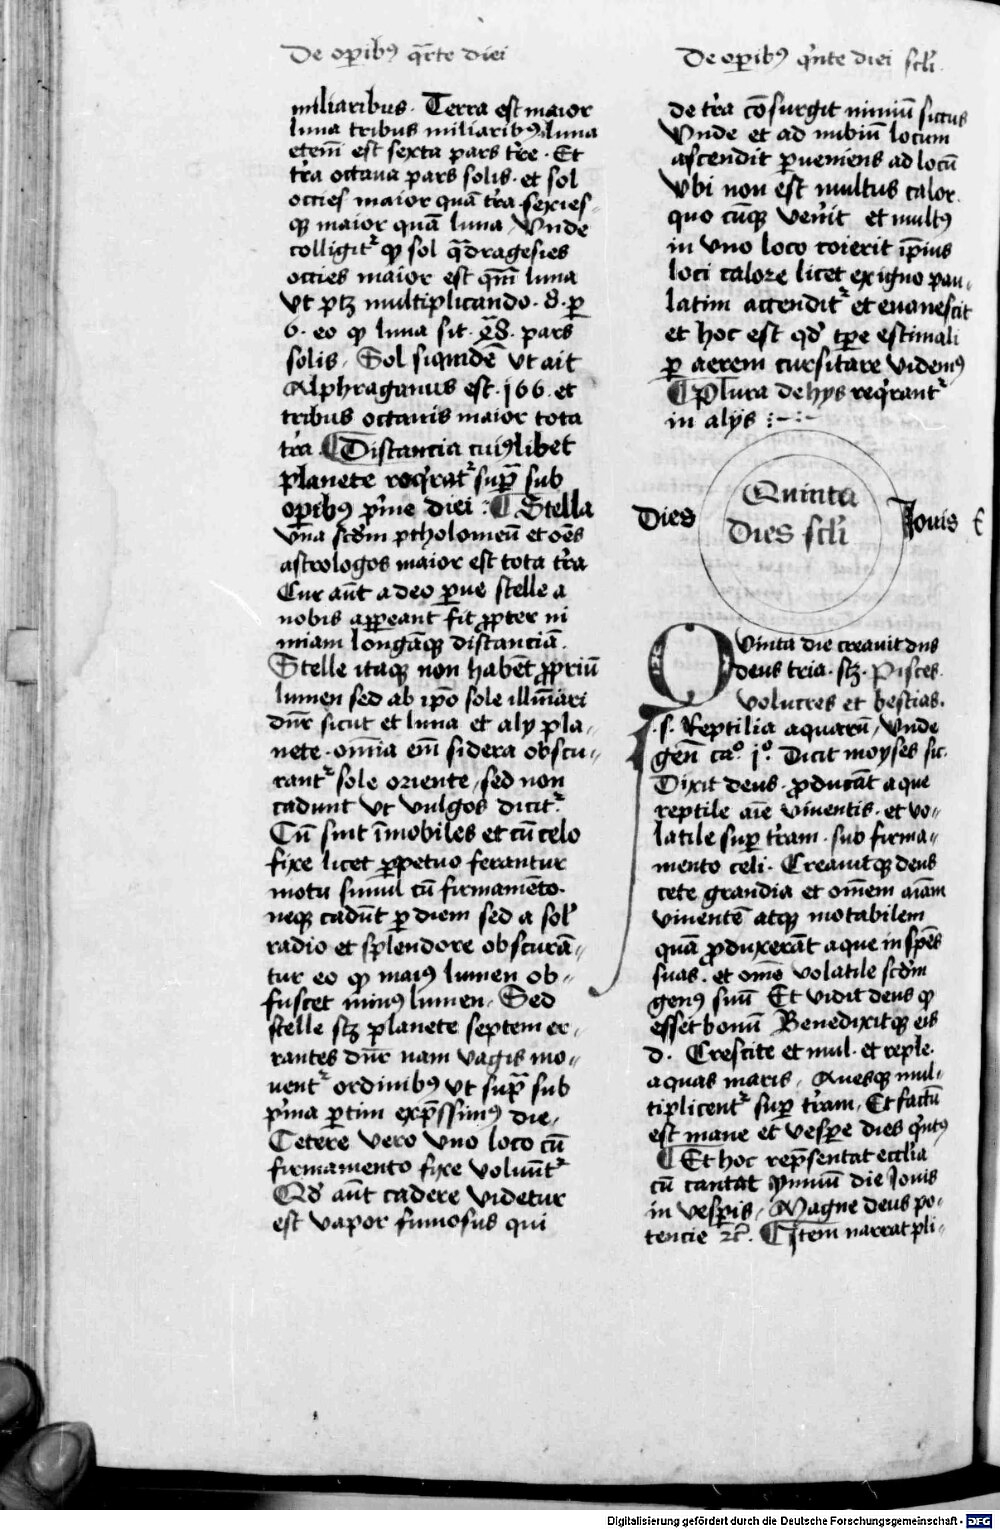 De op̄ibꝰ q̄rte diei
miliaribus. Terra est maior
luna tribus miliaribꝰ luna
eteni̅ est sexta pars tr̄e. Et
tr̄a octaua pars solis. et sol
occies maior quā tr̄a sexies-
qꝫ maior quā luna Vnde
colligitᷣ ꝙ sol q̄dragesies
occies maior est qm̄ luna
Vt ptꝫ multiplicando. 8. ꝑ
6. eo ꝙ luna sit. 48. pars
solis. Sol siquidē vt ait
Alphraganus est. 166. et
tribus octauis maior tota
tr̄a. ¶ Distancia cuiꝰlibet
planete reqͥratᷣ sup̄ sub
op̄ibꝰ pͥme diei : ¶ Stella
vn̄a scd̄m ptholomeū et oēs
astrologos maior est tota tr̄a
Cur aūt adeo ꝑue stelle a
nobis appeant fit ꝓpter ni
miam longāqꝫ distanciā.
Stelle itaqꝫ non habēt ꝓpriū
lumen sed ab ip̄o sole illuīari
dn̄r sicut et luna et aly pla-
nete. omīa em̄ sidera obscu-
rantᷣ sole oriente, sed non
cadunt vt vulgos dicitᷣ.
Cū sint īmobiles et cū celo
fixe licet ꝑpetuo ferantur
motu simul cū firmamēto.
neqꝫ cadūt ꝑ diem sed a sol̄
radio et splendore obscurā-
tur eo ꝙ maiꝰ lumen ob-
fuscet minꝰ lumen. Sed
stelle scꝫ planete septem er-
rantes dn̄r nam vagis mo-
uentᷣ ordinibꝰ vt sup̄ sub
pͥma ꝑtim exp̄ssimꝰ die.
Cetere vero vno loco cū
firmamento fixe voluūtᷣ
Qd̄ aūt cadere videtur
est vapor fumosus qui
De op̄ibꝰ qͥnte diei scl̄i.
de tr̄a cōsurgit nimiū siccus
Vnde et ad nubiū locum
ascendit ꝑueniens ad locū
vbi non est multus calor.
quo cūqꝫ ven̄it et multꝰ
in vno loco coierit ip̄ius
loci calore licet exiguo pau-
latim accenditᷣ et euanescit
et hoc est qd̄ tp̄e estiuali
ꝑ aerem cursitare videmꝰ
¶ Plura de hys reqͥrantᷣ
in alÿs :-:-
Dies Quinta Jouis
Dies scl̄i
Quinta die creauit dns
deus tria. scꝫ. Pisces.
volucres et bestias.
.s. Reptilia aquarū, Vnde
gen̄ ca° .j.° Dicit moyses sic.
Dixit deus. ꝓducāt aque
reptile aīe viuentis. et vo-
latile sup tr̄am. sub firma-
mento celi. Creauitqꝫ deus
cete grandia et om̄em aīam
viuentē atqꝫ motabilem
quā ꝓduxerāt aque in sp̄es
suas. et om̄e volatile scd̄m
genꝰ suū Et vidit deus ꝙ
esset bonū Benedixitqꝫ eis
d. Crescite et mul. et reple.
aquas maris, Auesqꝫ mul-
tiplicentᷣ sup tr̄am, Et factū
est mane et vespe dies qͥntꝰ
¶ Et hoc rep̄sentat eccl̄ia
cū cantat ymnū die Jouis
in vesp̄is, Magne deus po-
tencie ꝛc̄. ¶ Item narrat pli-
Digitalisierung gefördert durch die Deutsche Forschungsgemeinschaft - DFG